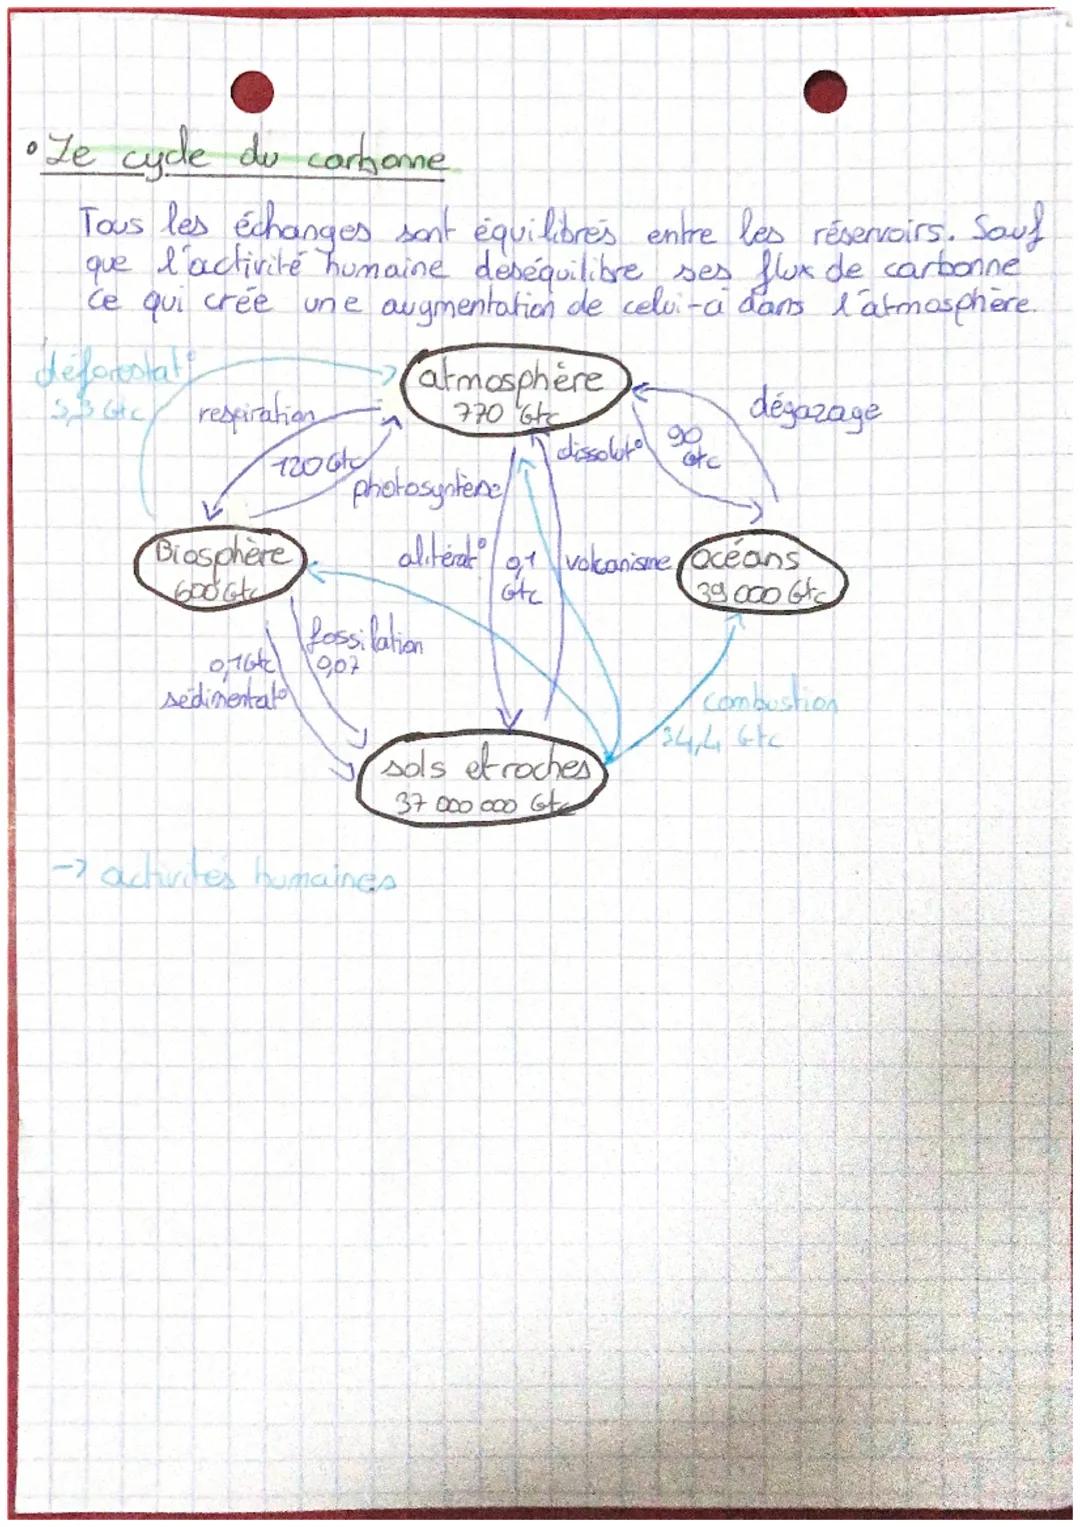 • Le cycle du carbonne
Tous les échanges sont équilibrés entre les réservoirs. Sauf
que l'activité humaine deséquilibre ses flux de carbonne
ce qui crée une augmentation de celui-ci dans l'atmosphère.
déforestat°
5,3 Gtc
respiration
120 Gtc
photosyntèse
atmosphère
770 Gtc
dissolut°
90
Gtc
dégazage
Biosphère
600 Gtc
alitérat°
0,1
Gtc
volcanisme
océans
39 000 Gtc
fossilation
0,07
0,1 Gtc
sédimentat°
combustion
34,4 Gtc
sols et roches
37 000 000 Gtc
-> activités humaines